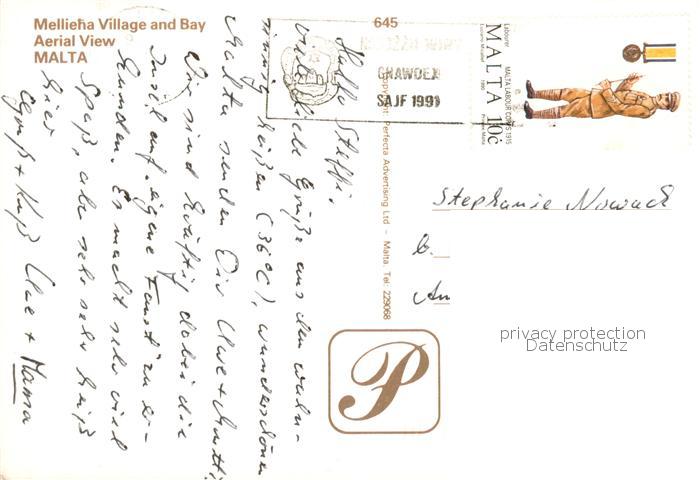 Mellieħa Village and Bay
Aerial View
MALTA
645
GĦAWDEX
SAJF 1991
Labourer
MALTA LABOUR CORPS 1915
Luciano Micallef
1990
MALTA 10c
Copyright: Perfecta Advertising Ltd – Malta Tel: 229068
P
Hallo Steffi,
viele liebe Grüße aus dem wahn-
sinnig heißen (36°C), wunderschönen
Malta senden Dir Uwe + Mutti.
Wir sind kräftig dabei die
Insel auf eigene Faust zu er-
kunden. Es macht sehr viel
Spaß, aber sehr sehr heiß
hier
Gruß + Kuß Uwe + Mama
Stephanie Nowack
privacy protection
Datenschutz